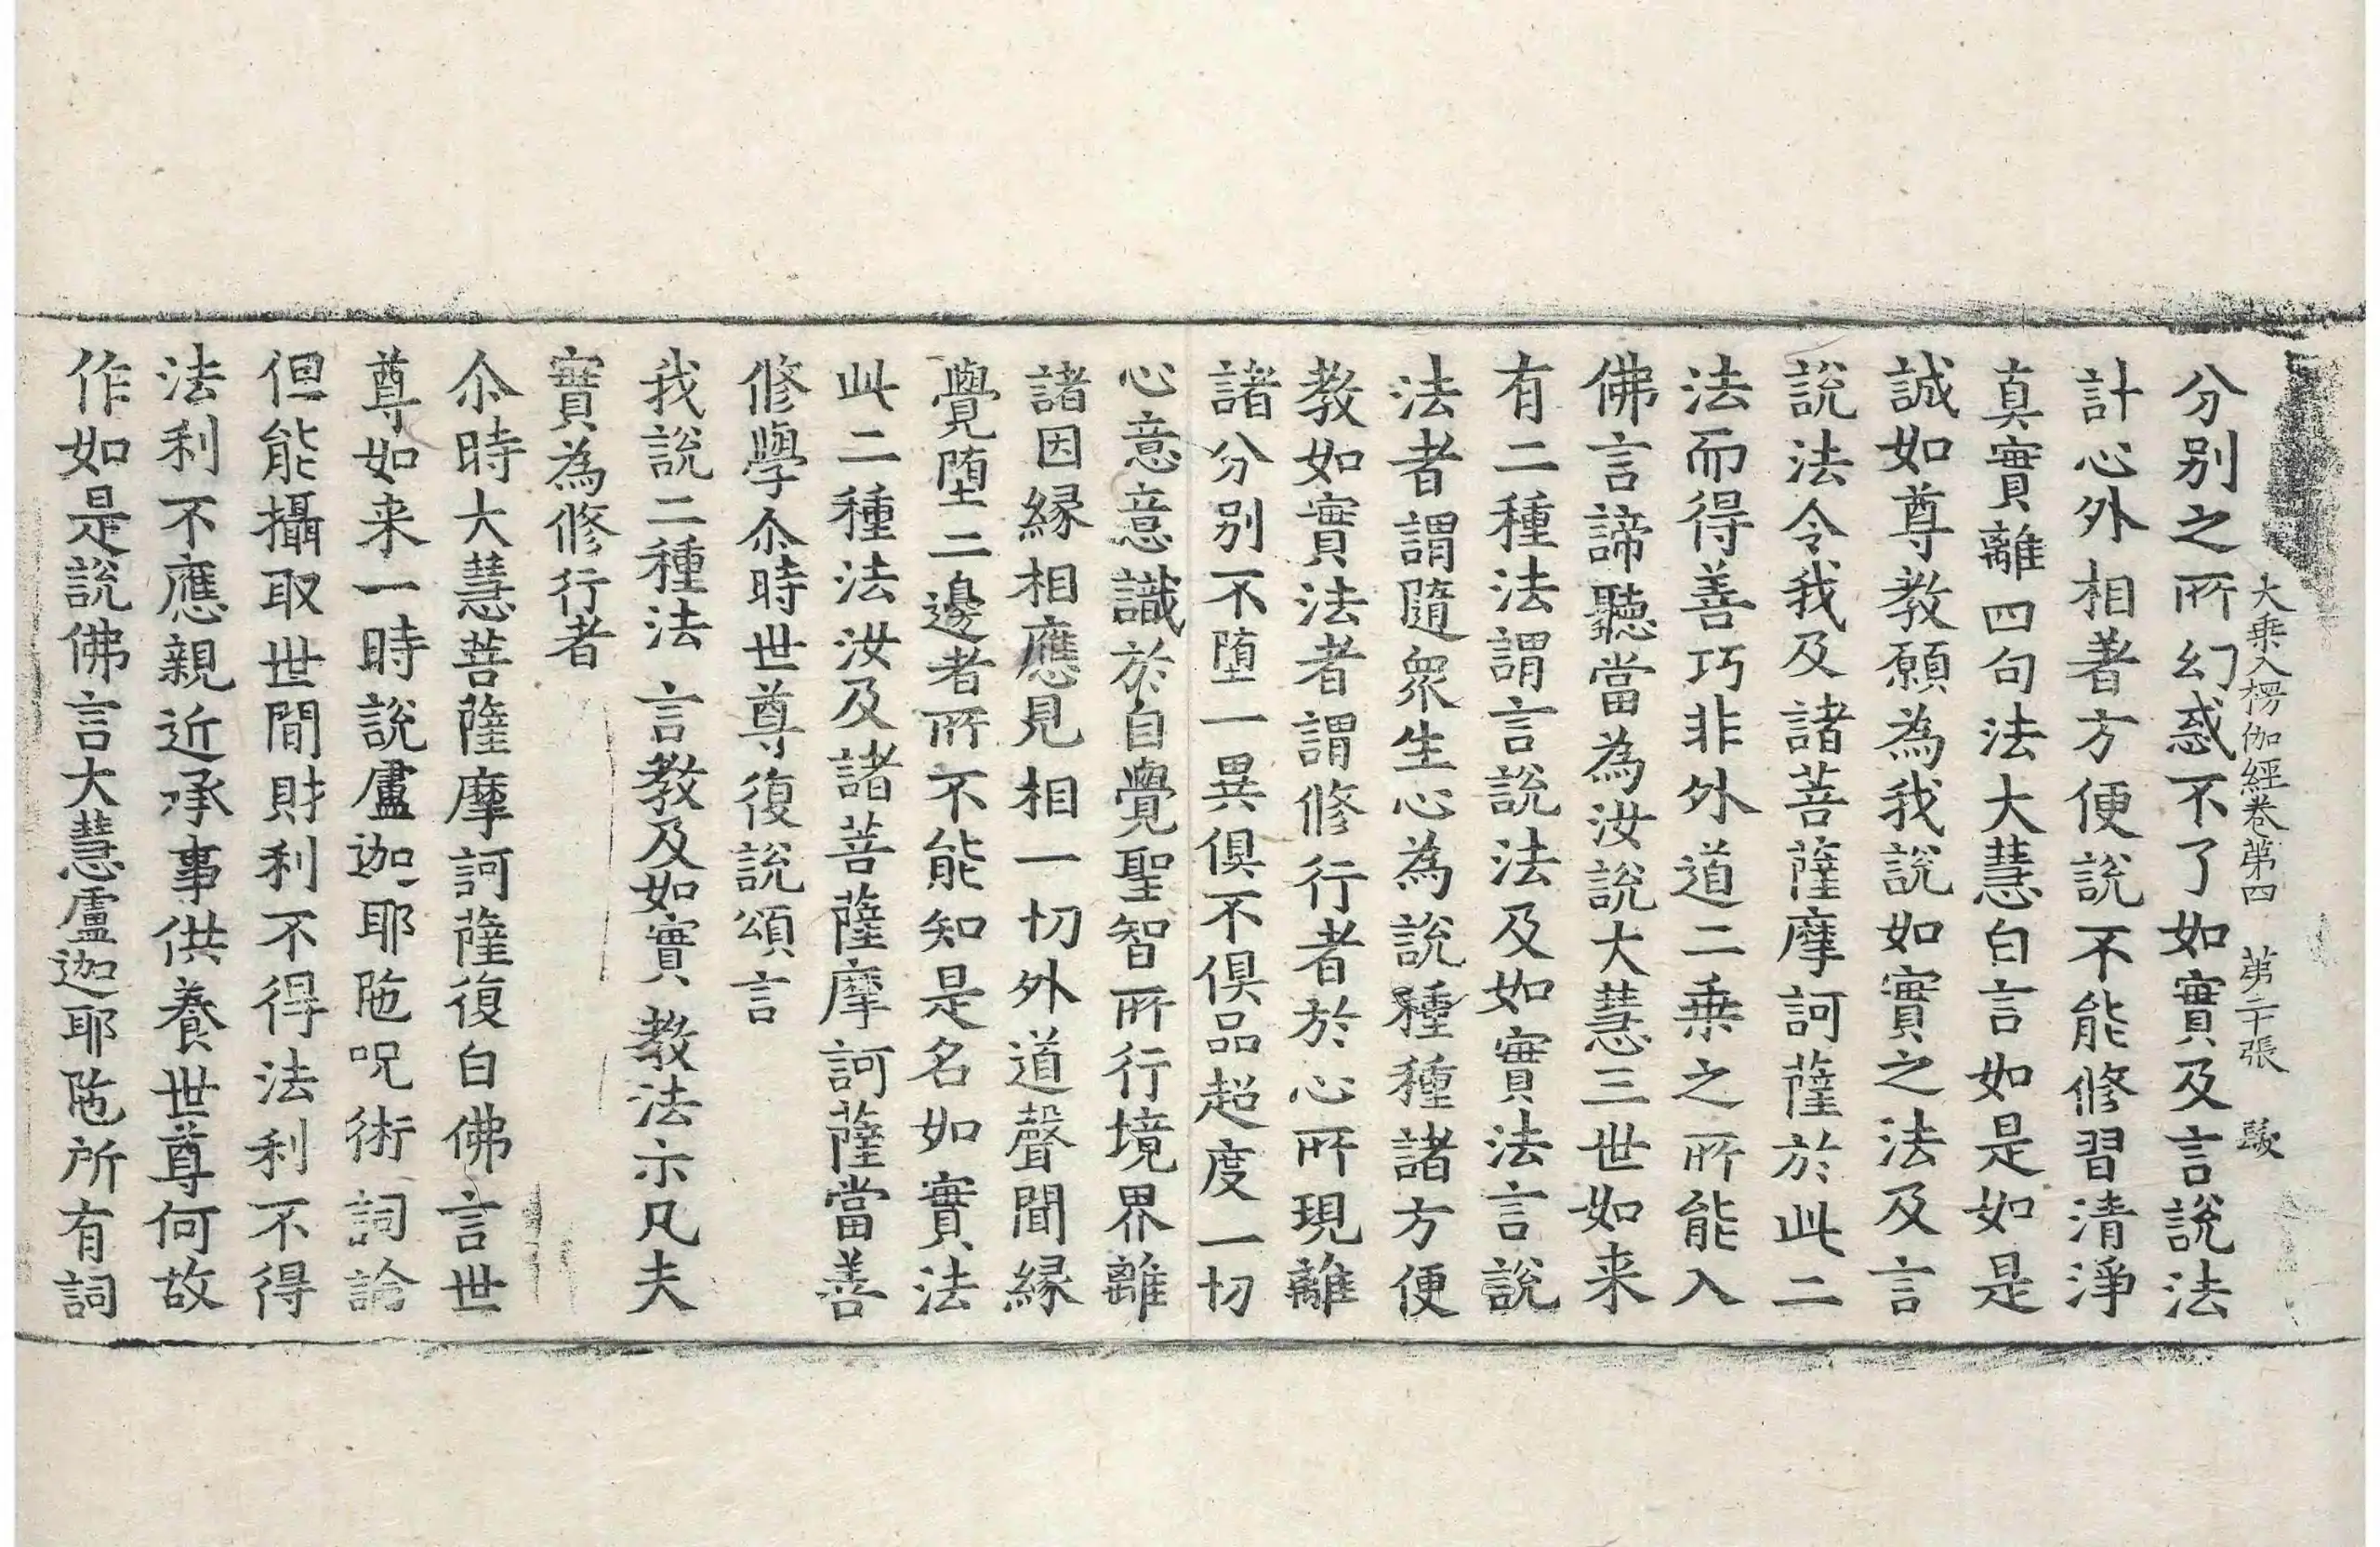 大乘入楞伽經卷第四　第二十張
分别之所幻惑不了如實及言說法
計心外相著方便說不能修習清淨
真實離四句法大慧白言如是如是
誠如尊教願為我說如實之法及言
說法令我及諸菩薩摩訶薩於此二
法而得善巧非外道二乘之所能入
佛言諦聽當為汝說大慧三世如来
有二種法謂言說法及如實法言說
法者謂隨衆生心為說種種諸方便
教如實法者謂修行者於心所現離
諸分别不堕一異俱不俱品超度一切
心意意識於自覺聖智所行境界離
諸因縁相應見相一切外道聲聞縁
覺堕二邊者所不能知是名如實法
此二種法汝及諸菩薩摩訶薩當善
修學尒時世尊復說頌言
我說二種法　言教及如實　教法示凡夫
實為修行者
尒時大慧菩薩摩訶薩復白佛言世
尊如来一時說盧迦耶陁呪術詞論
但能攝取世間財利不得法利不得
法利不應親近承事供養世尊何故
作如是說佛言大慧盧迦耶陁所有詞